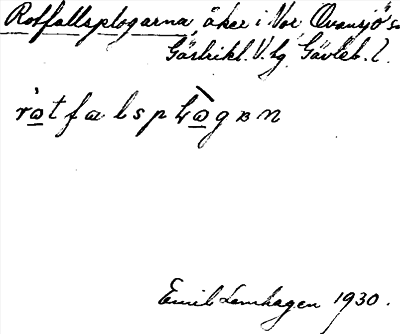 Rotfallsplogarna, åker i Vor, Ovansjö s
Gästrikl. V. tg. Gävleb. l.
rotfalsplogɐn
Emil Lemhagen 1930.